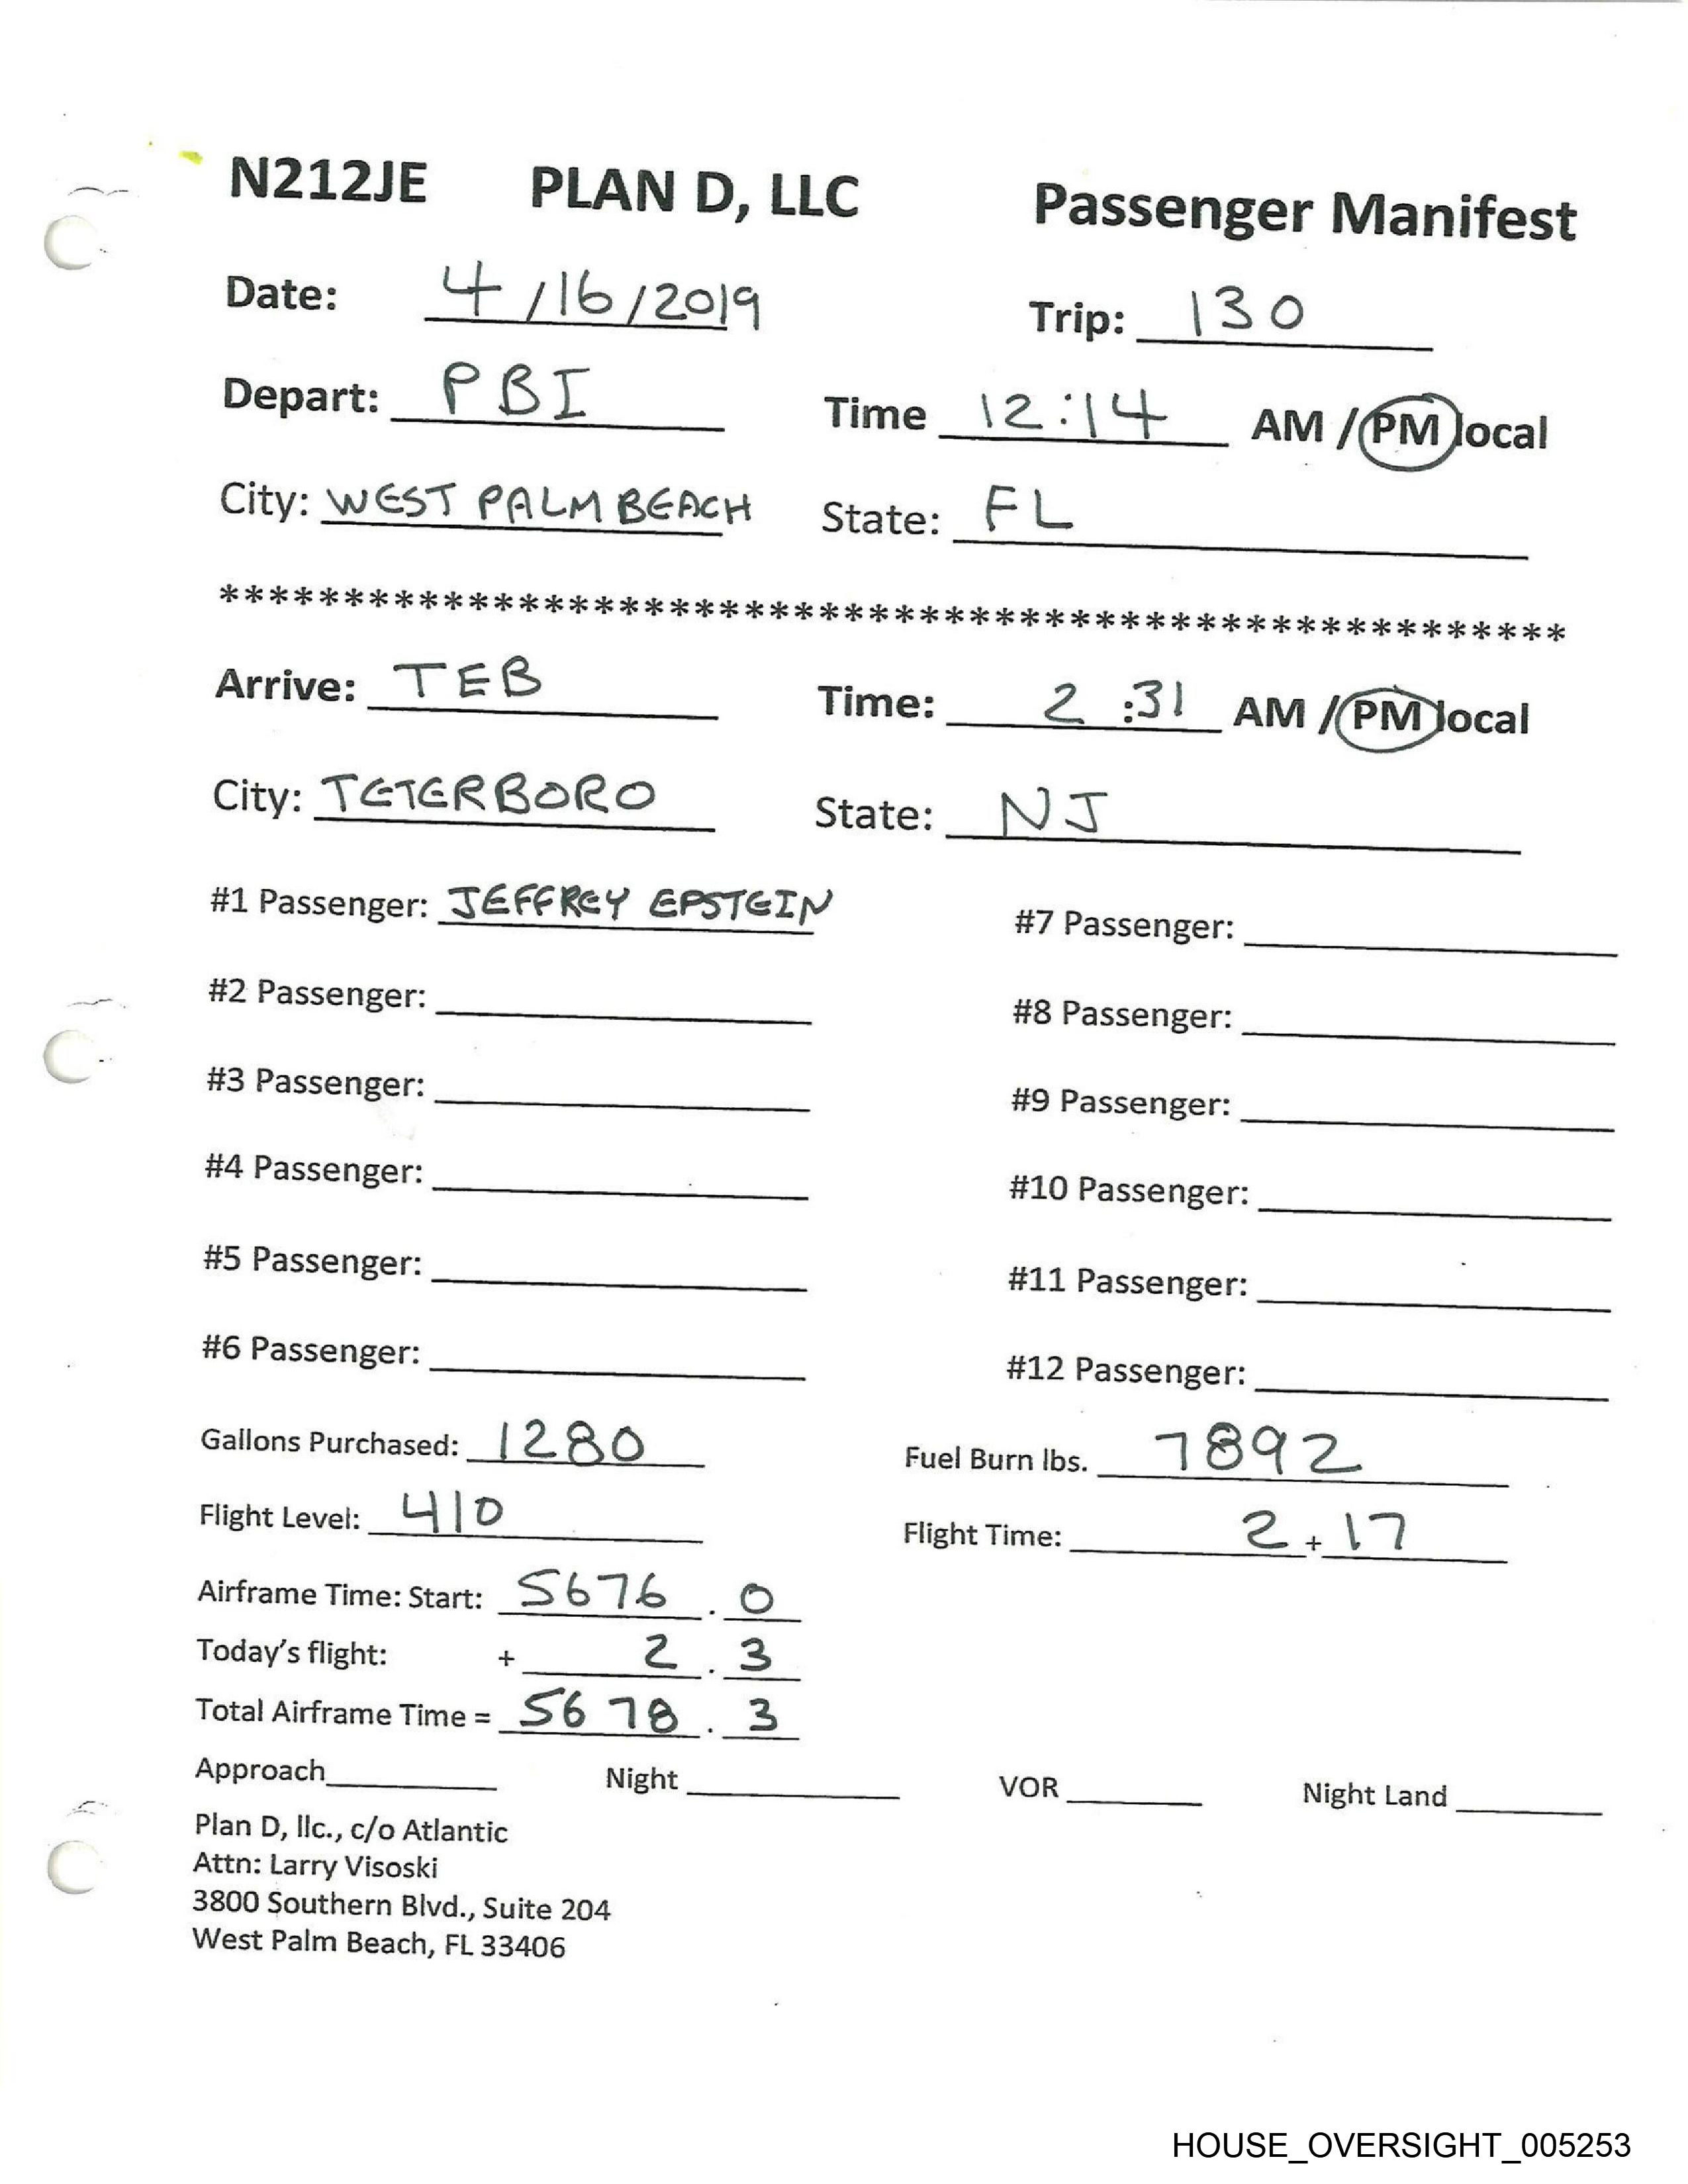 N212JE PLAN D, LLC Passenger Manifest
Date: 4/16/2019 Trip: 130
Depart: PBI Time 12:14 AM / PM local
City: WEST PALM BEACH State: FL
******************************************************
Arrive: TEB Time: 2:31 AM / PM local
City: TETERBORO State: NJ
#1 Passenger: JEFFREY EPSTEIN #7 Passenger:
#2 Passenger: #8 Passenger:
#3 Passenger: #9 Passenger:
#4 Passenger: #10 Passenger:
#5 Passenger: #11 Passenger:
#6 Passenger: #12 Passenger:
Gallons Purchased: 1280 Fuel Burn lbs. 7892
Flight Level: 410 Flight Time: 2 + 17
Airframe Time: Start: 5676 . 0
Today's flight: + 2 . 3
Total Airframe Time = 5678 . 3
Approach Night VOR Night Land
Plan D, llc., c/o Atlantic
Attn: Larry Visoski
3800 Southern Blvd., Suite 204
West Palm Beach, FL 33406
HOUSE_OVERSIGHT_005253